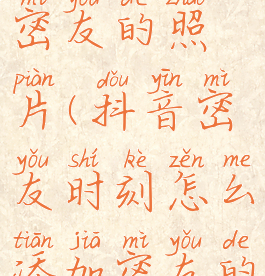 mì yǒu de zhào
密友的照
piàn dǒu yīn mì
片(抖音密
yǒu shí kè zěn me
友时刻怎么
tiān jiā mì yǒu de
添加密友的